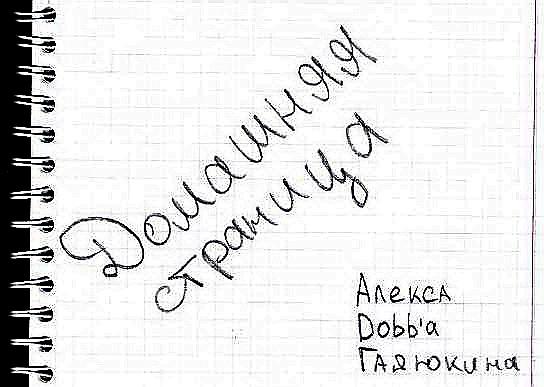 Домашняя
страница
Алекса
Dobb'a
Гаятюкина